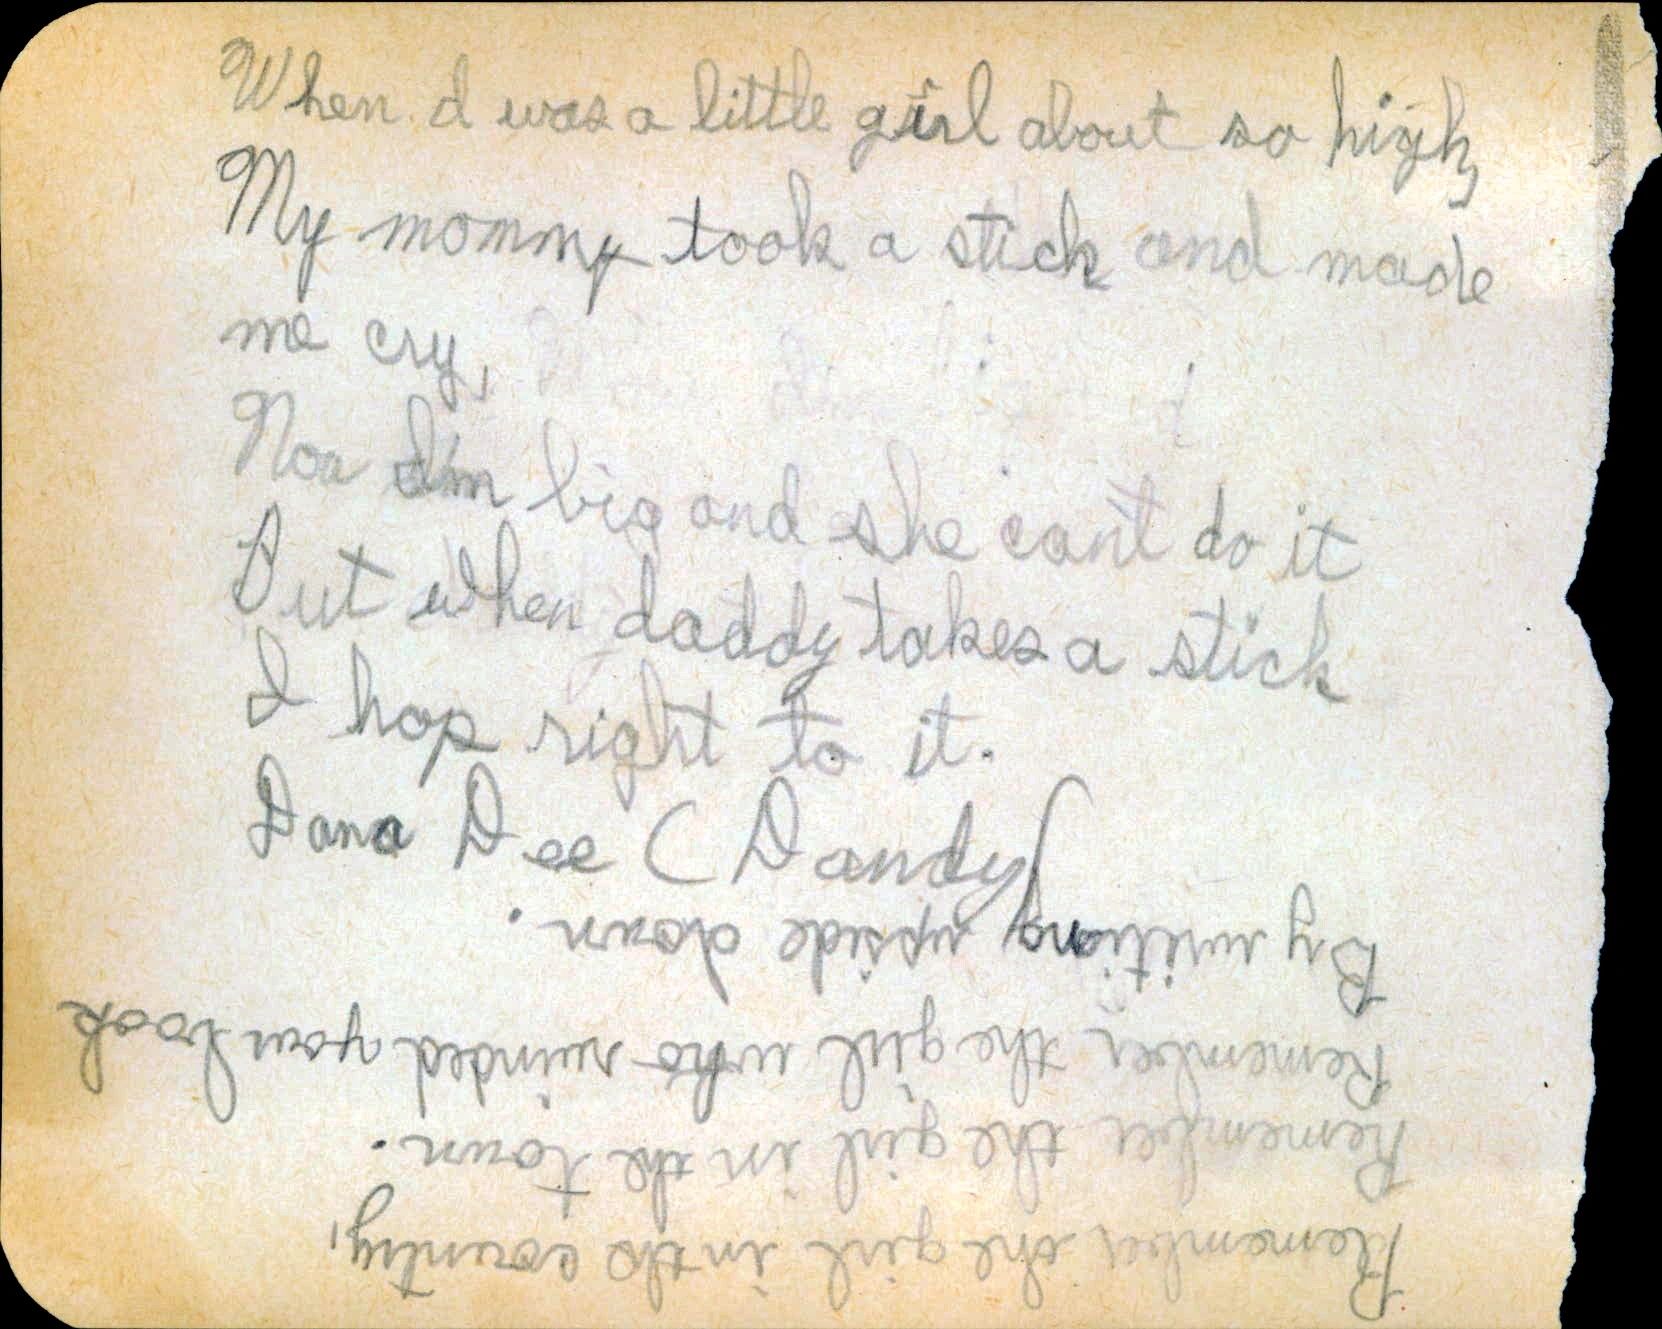 When I was a little girl about so high,
My mommy took a stick and made
me cry,
Now I'm big and she can't do it
But when daddy takes a stick
I hop right to it.
Dana Dee (Dandy)
Remember the girl in the country,
Remember the girl in the town.
Remember the girl who ruinded your book
By writing upside down.